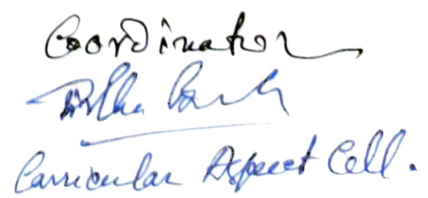 Coordinator
Curricular Aspect Cell.